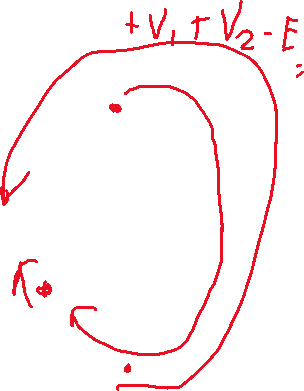 +V₁+V₂-E
=